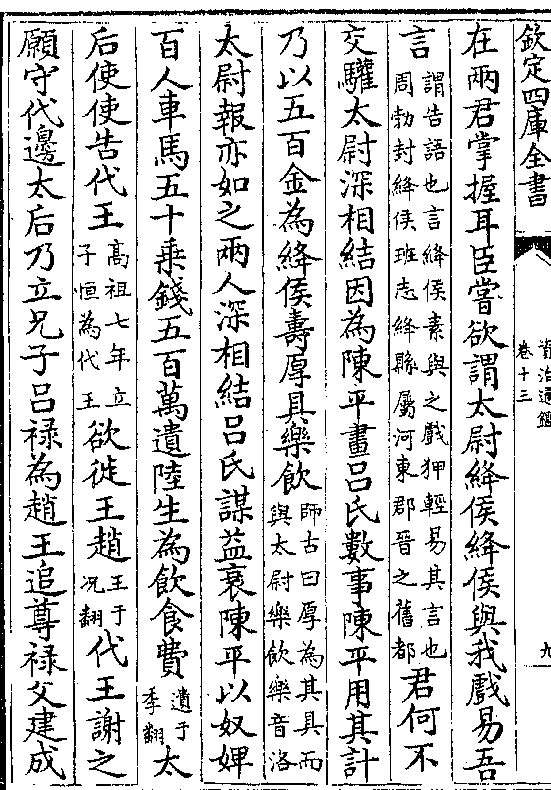 欽定四庫全書
資治通鑑
卷十三
九
在兩君掌握耳臣嘗欲謂太尉絳侯絳侯與我戲易吾
言謂告語也言絳侯素與之戲狎輕易其言也周勃封絳侯班志絳縣屬河東郡晉之舊都君何不
交驩太尉深相結因為陳平畫吕氏數事陳平用其計
乃以五百金為絳侯壽厚具樂飲師古曰厚為其具而與太尉樂飲樂音洛
太尉報亦如之兩人深相結吕氏謀益衰陳平以奴婢
百人車馬五十乗錢五百萬遺陸生為飲食費遺于季翻太
后使使告代王高祖七年立子恒為代王欲徙王趙王于况翻代王謝之
願守代邊太后乃立兄子吕禄為趙王追尊禄父建成